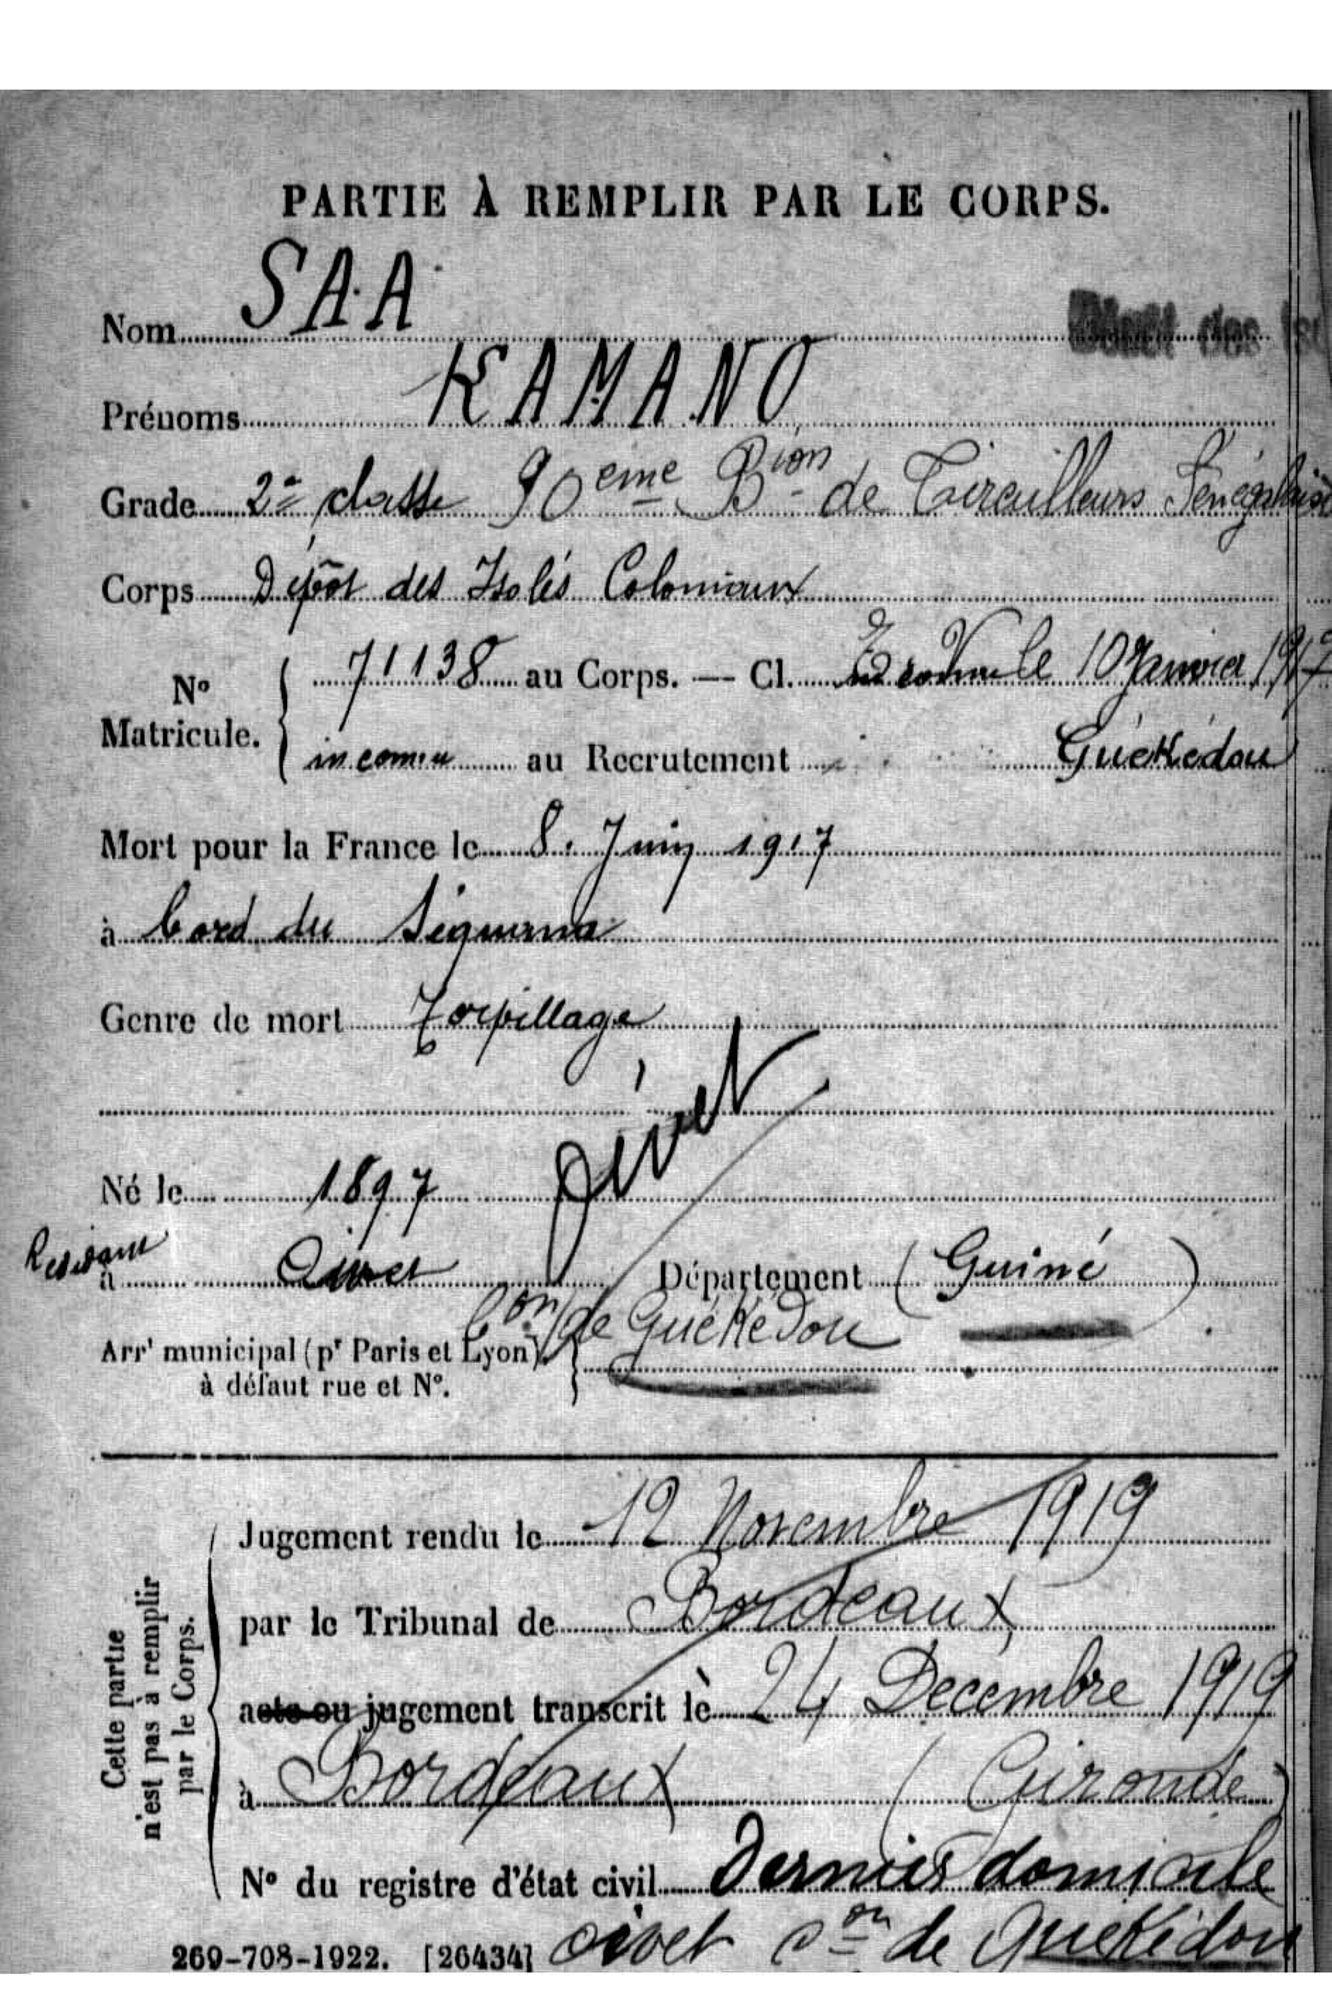 PARTIE À REMPLIR PAR LE CORPS.
Nom SAA
Dépôt des Iso
Prénoms KAMANO
Grade 2e classe 90eme Bion de Tirailleurs Sénégalais
Corps Dépôt des Isolés Coloniaux
No Matricule. 71138 au Corps. — Cl. le 10 Janvier 1917
inconnu au Recrutement Guékédou
Mort pour la France le 8 Juin 1917
à bord du Séquana
Genre de mort Torpillage
Né le 1897
à Département (Guiné)
Con de Guékédou
Arrt municipal (pr Paris et Lyon)
à défaut rue et No.
Cette partie
n'est pas à remplir
par le Corps.
Jugement rendu le 12 Novembre 1919
par le Tribunal de Bordeaux
acte ou jugement transcrit le 24 Décembre 1919
à Bordeaux (Gironde)
No du registre d'état civil Dernier domicile
Con de Guekédou
269-708-1922. [26434]